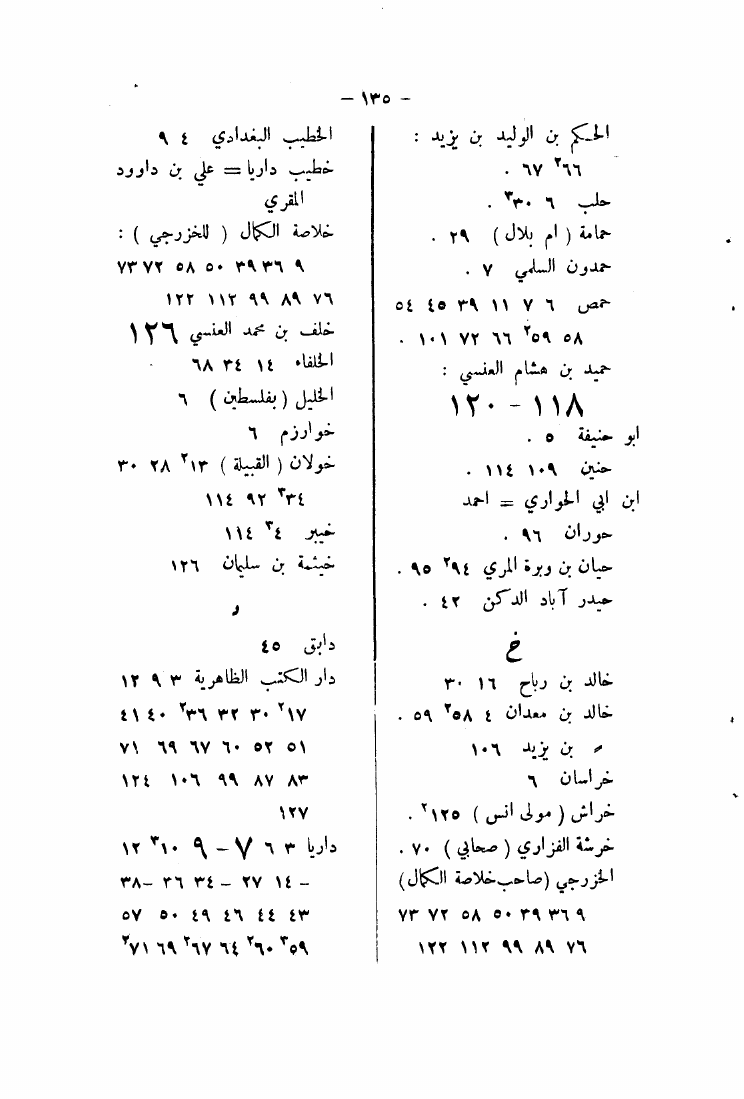 – ١٣٥ –
الحكم بن الوليد بن يزيد :
٦٦٢ ٦٧ .
حلب ٦ ٣٠٣ .
حمامة ( ام بلال ) ٢٩ .
حمدون السلمي ٧ .
حمص ٦ ٧ ١١ ٣٩ ٤٥ ٥٤
٥٨ ٥٩٢ ٦٦ ٧٢ ١٠١ .
حميد بن هشام العنسي :
١١٨ – ١٢٠
ابو حنيفة ٥ .
حنين ١٠٩ ١١٤ .
ابن ابي الحواري = احمد
حوران ٩٦ .
حيان بن وبرة المري ٩٤٢ ٩٥ .
حيدر آباد الدكن ٤٢ .
خ
خالد بن رباح ١٦ ٣٠
خالد بن معدان ٤ ٥٨٢ ٥٩ .
〃 بن يزيد ١٠٦
خراسان ٦
خراش ( مولى انس ) ١٢٥٢ .
خرشة الفزاري ( صحابي ) ٧٠ .
الخزرجي (صاحب خلاصة الكمال)
٩ ٣٦ ٣٩ ٥٠ ٥٨ ٧٢ ٧٣
٧٦ ٨٩ ٩٩ ١١٢ ١٢٢
الخطيب البغدادي ٤ ٩
خطيب داريا = علي بن داوود
المقري
خلاصة الكمال ( للخزرجي ) :
٩ ٣٦ ٣٩ ٥٠ ٥٨ ٧٢ ٧٣
٧٦ ٨٩ ٩٩ ١١٢ ١٢٢
خلف بن محمد العنسي ١٢٦
الخلفاء ١٤ ٣٤ ٦٨
الخليل ( بفلسطين ) ٦
خوارزم ٦
خولان ( القبيلة ) ١٣٢ ٢٨ ٣٠
٣٤٣ ٩٢ ١١٤
خيبر ٤٣ ١١٤
خيثمة بن سليمان ١٢٦
د
دابق ٤٥
دار الكتب الظاهرية ٣ ٩ ١٢
١٧٢ ٣٠ ٣٢ ٣٦٢ ٤٠ ٤١
٥١ ٥٢ ٦٠ ٦٧ ٦٩ ٧١
٨٣ ٨٧ ٩٩ ١٠٦ ١٢٤
١٢٧
داريا ٣ ٦ ٧ – ٩ ١٠٣ ١٢
– ١٤ ٢٧ – ٣٤ ٣٦ – ٣٨
٤٣ ٤٤ ٤٦ ٤٩ ٥٠ ٥٧
٥٩٣ ٦٠٢ ٦٤ ٦٧٢ ٦٩ ٧١٢